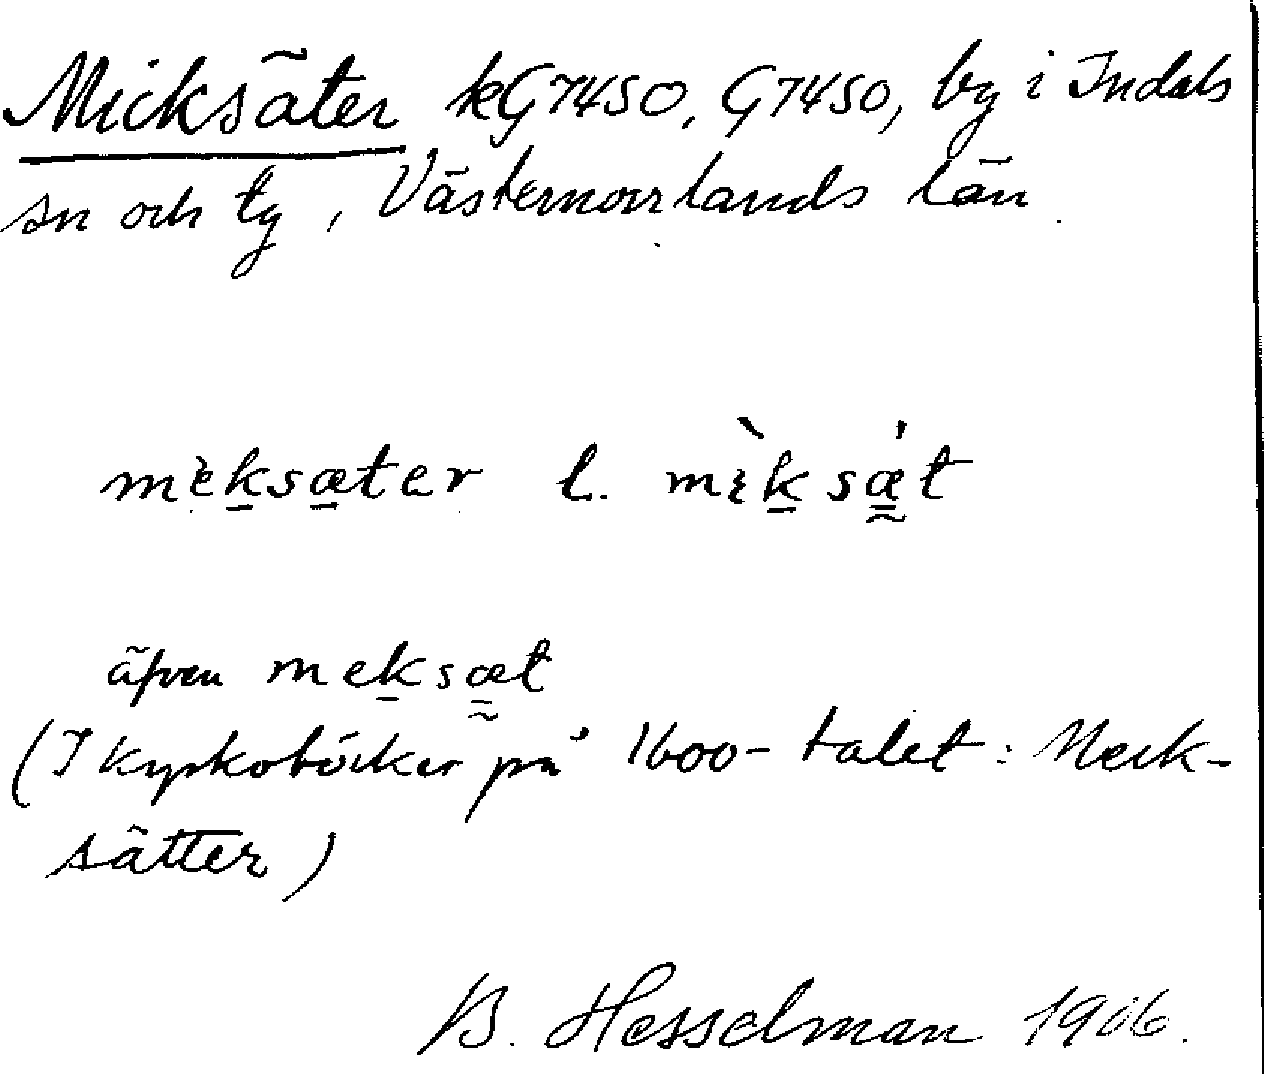 Micksäter kG7450, G7450, by i Indals
sn och tg, Västernorrlands län.
mèk̲sæ̲ter l. mìk̲ sǽ̲t
äfven mek̲sæ̲t
(I kyrkoböcker på 1600-talet: Meck-
sätter)
B. Hesselman 1906.